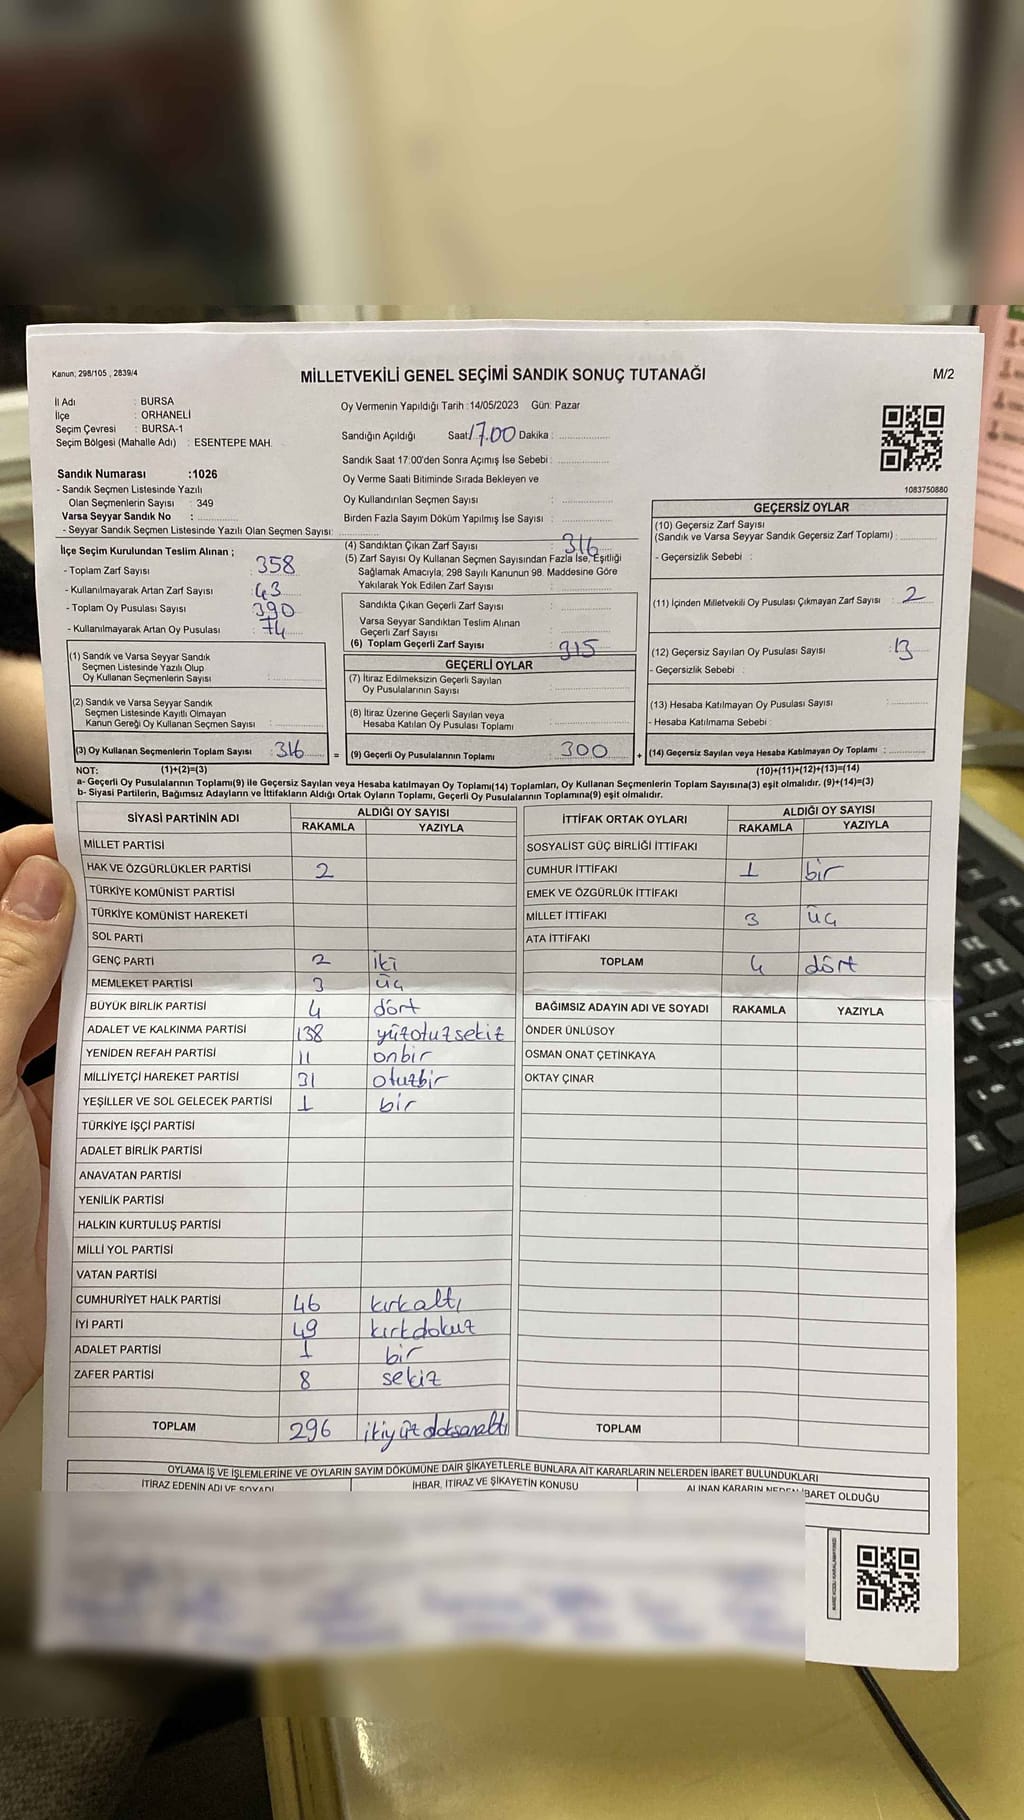 Kanun; 298/105 , 2839/4
MİLLETVEKİLİ GENEL SEÇİMİ SANDIK SONUÇ TUTANAĞI
M/2
İl Adı : BURSA
İlçe : ORHANELİ
Seçim Çevresi : BURSA-1
Seçim Bölgesi (Mahalle Adı) : ESENTEPE MAH.
Sandık Numarası :1026
- Sandık Seçmen Listesinde Yazılı
Olan Seçmenlerin Sayısı : 349
Varsa Seyyar Sandık No :
- Seyyar Sandık Seçmen Listesinde Yazılı Olan Seçmen Sayısı:
Oy Vermenin Yapıldığı Tarih :14/05/2023 Gün: Pazar
Sandığın Açıldığı Saat 17.00 Dakika :
Sandık Saat 17:00'den Sonra Açımış İse Sebebi :
Oy Verme Saati Bitiminde Sırada Bekleyen ve
Oy Kullandırılan Seçmen Sayısı :
Birden Fazla Sayım Döküm Yapılmış İse Sayısı :
1083750880
İlçe Seçim Kurulundan Teslim Alınan ;
- Toplam Zarf Sayısı : 358
- Kullanılmayarak Artan Zarf Sayısı : 43
- Toplam Oy Pusulası Sayısı : 390
- Kullanılmayarak Artan Oy Pusulası : 74
(1) Sandık ve Varsa Seyyar Sandık
Seçmen Listesinde Yazılı Olup
Oy Kullanan Seçmenlerin Sayısı :
(2) Sandık ve Varsa Seyyar Sandık
Seçmen Listesinde Kayıtlı Olmayan
Kanun Gereği Oy Kullanan Seçmen Sayısı :
(3) Oy Kullanan Seçmenlerin Toplam Sayısı : 316
(4) Sandıktan Çıkan Zarf Sayısı : 316
(5) Zarf Sayısı Oy Kullanan Seçmen Sayısından Fazla İse, Eşitliği
Sağlamak Amacıyla, 298 Sayılı Kanunun 98. Maddesine Göre
Yakılarak Yok Edilen Zarf Sayısı :
Sandıkta Çıkan Geçerli Zarf Sayısı :
Varsa Seyyar Sandıktan Teslim Alınan
Geçerli Zarf Sayısı :
(6) Toplam Geçerli Zarf Sayısı : 315
GEÇERLİ OYLAR
(7) İtiraz Edilmeksizin Geçerli Sayılan
Oy Pusulalarının Sayısı :
(8) İtiraz Üzerine Geçerli Sayılan veya
Hesaba Katılan Oy Pusulası Toplamı :
= (9) Geçerli Oy Pusulalarının Toplamı : 300 +
GEÇERSİZ OYLAR
(10) Geçersiz Zarf Sayısı
(Sandık ve Varsa Seyyar Sandık Geçersiz Zarf Toplamı) :
- Geçersizlik Sebebi :
(11) İçinden Milletvekili Oy Pusulası Çıkmayan Zarf Sayısı : 2
(12) Geçersiz Sayılan Oy Pusulası Sayısı : 13
- Geçersizlik Sebebi :
(13) Hesaba Katılmayan Oy Pusulası Sayısı :
- Hesaba Katılmama Sebebi :
(14) Geçersiz Sayılan veya Hesaba Katılmayan Oy Toplamı :
NOT: (1)+(2)=(3)
(10)+(11)+(12)+(13)=(14)
a- Geçerli Oy Pusulalarının Toplamı(9) ile Geçersiz Sayılan veya Hesaba katılmayan Oy Toplamı(14) Toplamları, Oy Kullanan Seçmenlerin Toplam Sayısına(3) eşit olmalıdır. (9)+(14)=(3)
b- Siyasi Partilerin, Bağımsız Adayların ve İttifakların Aldığı Ortak Oyların Toplamı, Geçerli Oy Pusulalarının Toplamına(9) eşit olmalıdır.
SİYASİ PARTİNİN ADI ALDIĞI OY SAYISI
RAKAMLA YAZIYLA
MİLLET PARTİSİ
HAK VE ÖZGÜRLÜKLER PARTİSİ 2
TÜRKİYE KOMÜNİST PARTİSİ
TÜRKİYE KOMÜNİST HAREKETİ
SOL PARTİ
GENÇ PARTİ 2 iki
MEMLEKET PARTİSİ 3 üç
BÜYÜK BİRLİK PARTİSİ 4 dört
ADALET VE KALKINMA PARTİSİ 138 yüzotuzsekiz
YENİDEN REFAH PARTİSİ 11 onbir
MİLLİYETÇİ HAREKET PARTİSİ 31 otuzbir
YEŞİLLER VE SOL GELECEK PARTİSİ 1 bir
TÜRKİYE İŞÇİ PARTİSİ
ADALET BİRLİK PARTİSİ
ANAVATAN PARTİSİ
YENİLİK PARTİSİ
HALKIN KURTULUŞ PARTİSİ
MİLLİ YOL PARTİSİ
VATAN PARTİSİ
CUMHURİYET HALK PARTİSİ 46 kırkaltı
İYİ PARTİ 49 kırkdokuz
ADALET PARTİSİ 1 bir
ZAFER PARTİSİ 8 sekiz
TOPLAM 296 ikiyüzdoksanaltı
İTTİFAK ORTAK OYLARI ALDIĞI OY SAYISI
RAKAMLA YAZIYLA
SOSYALİST GÜÇ BİRLİĞİ İTTİFAKI
CUMHUR İTTİFAKI 1 bir
EMEK VE ÖZGÜRLÜK İTTİFAKI
MİLLET İTTİFAKI 3 üç
ATA İTTİFAKI
TOPLAM 4 dört
BAĞIMSIZ ADAYIN ADI VE SOYADI RAKAMLA YAZIYLA
ÖNDER ÜNLÜSOY
OSMAN ONAT ÇETİNKAYA
OKTAY ÇINAR
TOPLAM
OYLAMA İŞ VE İŞLEMLERİNE VE OYLARIN SAYIM DÖKÜMÜNE DAİR ŞİKAYETLERLE BUNLARA AİT KARARLARIN NELERDEN İBARET BULUNDUKLARI
İTİRAZ EDENİN ADI VE SOYADI İHBAR, İTİRAZ VE ŞİKAYETİN KONUSU ALINAN KARARIN NEDEN İBARET OLDUĞU